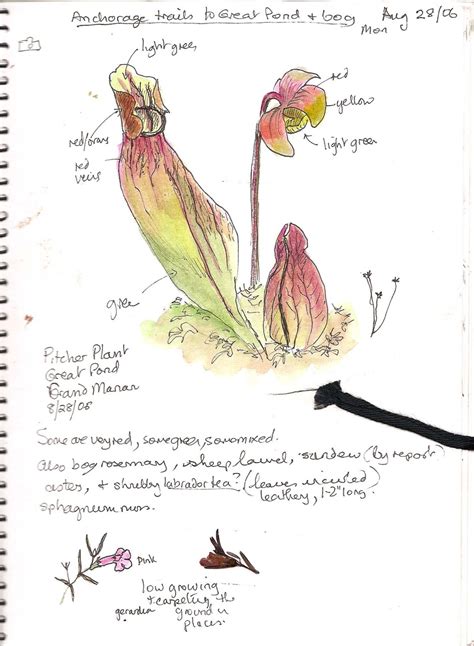 Anchorage trails to Great Pond & bog Aug 28/06
Mon
light green
red
yellow
light green
red/brown
red
veins
green
Pitcher Plant
Great Pond
Grand Manan
8/28/06
Some are very red, some green, some mixed.
Also bog rosemary, sheep laurel, sundew (by report)
aster, & shrubby labrador tea? (leaves inverted
leathery, 1-2" long.
sphagnum moss.
pink
low growing
& carpeting the
gerardia ground in
places.